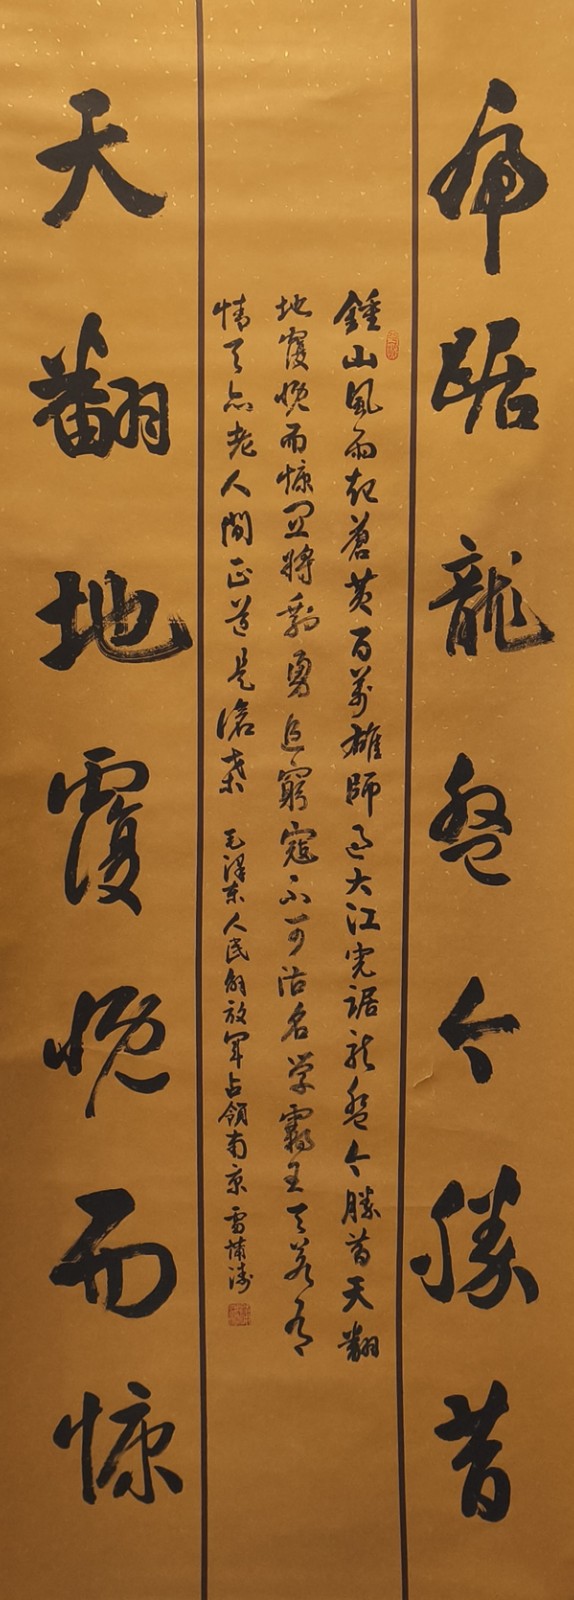 虎踞龍盤今勝昔
鍾山風雨起蒼黄百萬雄師過大江虎踞龍盤今勝昔天翻
地覆慨而慷宜將剩勇追窮寇不可沽名学霸王天若有
情天亦老人間正道是滄桑 毛澤東人民解放軍占領南京
天翻地覆慨而慷